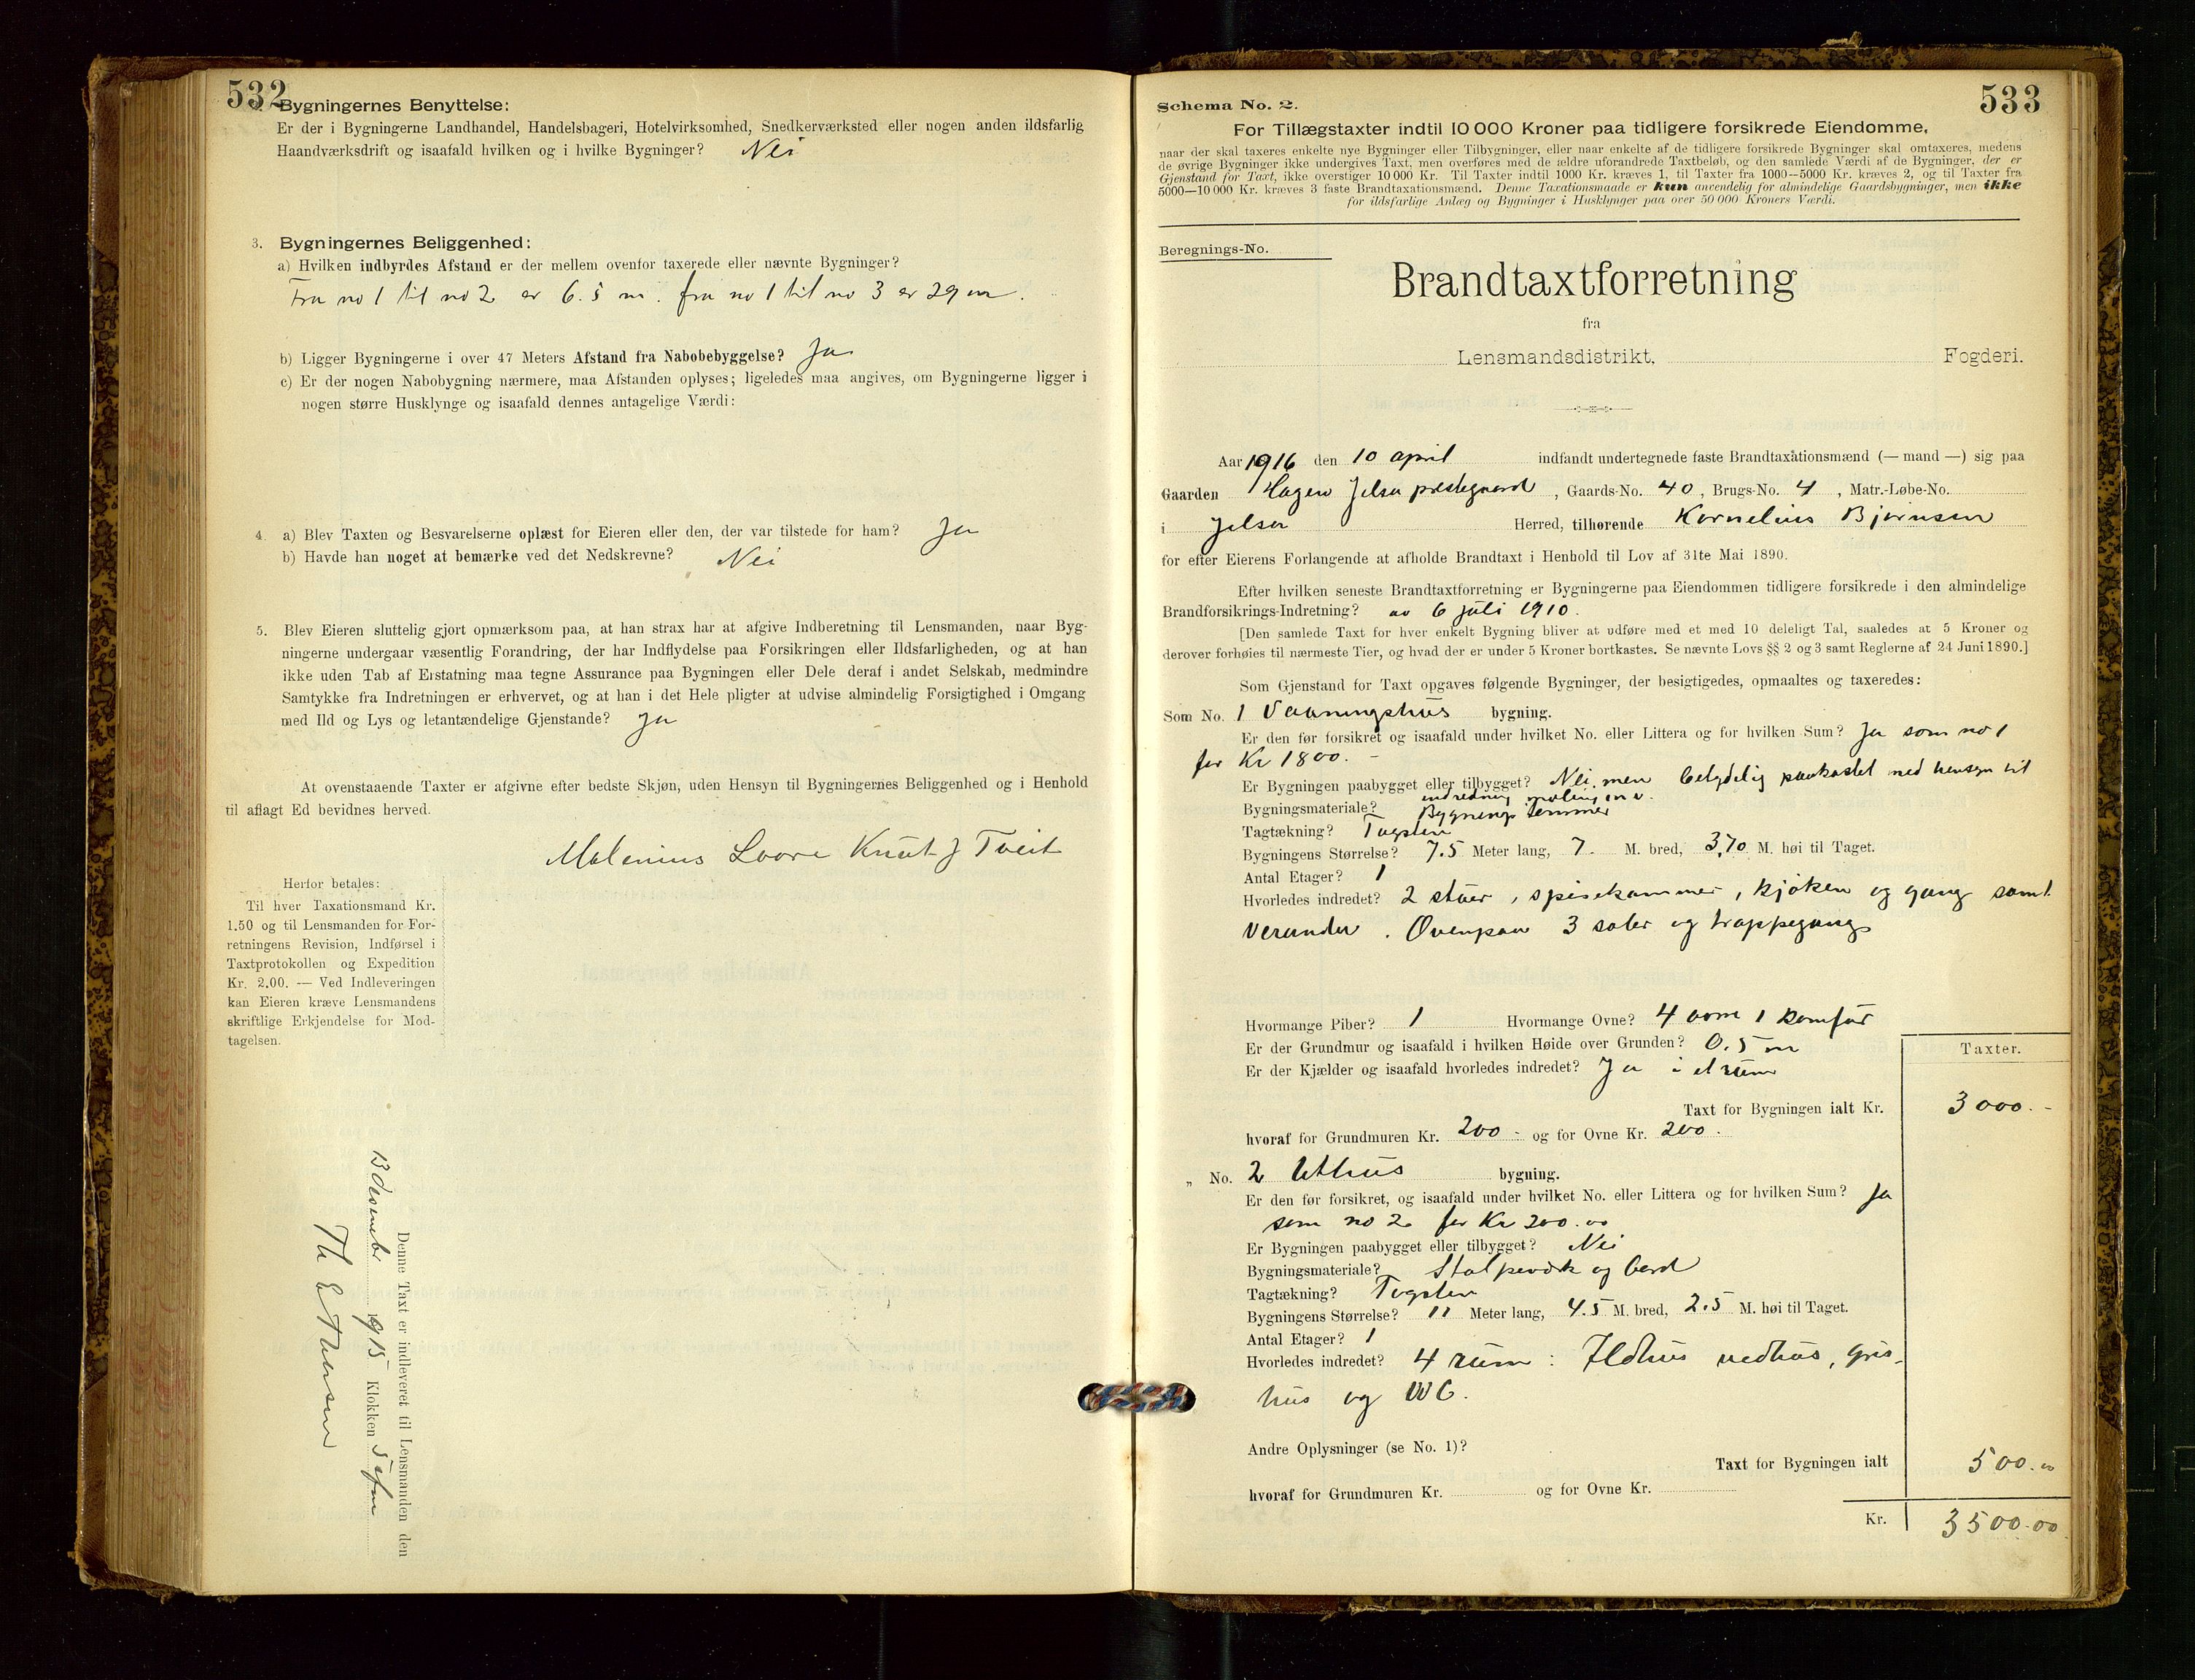 532
Bygningernes Benyttelse:
Er der i Bygningerne Landhandel, Handelsbageri, Hotelvirksomhed, Snedkerværksted eller nogen anden ildsfarlig
Haandværksdrift og isaafald hvilken og i hvilke Bygninger? Nei
3. Bygningernes Beliggenhed:
a) Hvilken indbyrdes Afstand er der mellem ovenfor taxerede eller nævnte Bygninger?
Fra no 1 til no 2 er 6.5 m. fra no 1 til no 3 er 29 m.
b) Ligger Bygningerne i over 47 Meters Afstand fra Nabobebyggelse? Ja
c) Er der nogen Nabobygning nærmere, maa Afstanden oplyses; ligeledes maa angives, om Bygningerne ligger i
nogen større Husklynge og isaafald dennes antagelige Værdi:
4. a) Blev Taxten og Besvarelserne oplæst for Eieren eller den, der var tilstede for ham? Ja
b) Havde han noget at bemærke ved det Nedskrevne? Nei
5. Blev Eieren sluttelig gjort opmærksom paa, at han strax har at afgive Indberetning til Lensmanden, naar Byg-
ningerne undergaar væsentlig Forandring, der har Indflydelse paa Forsikringen eller Ildsfarligheden, og at han
ikke uden Tab af Erstatning maa tegne Assurance paa Bygningen eller Dele deraf i andet Selskab, medmindre
Samtykke fra Indretningen er erhvervet, og at han i det Hele pligter at udvise almindelig Forsigtighed i Omgang
med Ild og Lys og letantændelige Gjenstande? Ja
At ovenstaaende Taxter er afgivne efter bedste Skjøn, uden Hensyn til Bygningernes Beliggenhed og i Henhold
til aflagt Ed bevidnes herved.
Knut J Tveit
Herfor betales:
Til hver Taxationsmand Kr.
1.50 og til Lensmanden for For-
retningens Revision, Indførsel i
Taxtprotokollen og Expedition
Kr. 2,00. — Ved Indleveringen
kan Eieren kræve Lensmandens
skriftlige Erkjendelse for Mod-
tagelsen.
Denne Taxt er indleveret til Lensmanden den
13 desember 1915 Klokken 5 efm
533
Schema No. 2.
For Tillægstaxter indtil 10 000 Kroner paa tidligere forsikrede Eiendomme,
naar der skal taxeres enkelte nye Bygninger eller Tilbygninger, eller naar enkelte af de tidligere forsikrede Bygninger skal omtaxeres, medens
de øvrige Bygninger ikke undergives Taxt, men overføres med de ældre uforandrede Taxtbeløb, og den samlede Værdi af de Bygninger, der er
Gjenstand for Taxt, ikke overstiger 10 000 Kr. Til Taxter indtil 1000 Kr. kræves 1, til Taxter fra 1000—5000 Kr. kræves 2, og til Taxter fra
5000—10 000 Kr. kræves 3 faste Brandtaxationsmænd. Denne Taxationsmaade er kun anvendelig for almindelige Gaardsbygninger, men ikke
for ildsfarlige Anlæg og Bygninger i Husklynger paa over 50 000 Kroners Værdi.
Beregnings-No.
Brandtaxtforretning
fra
Lensmandsdistrikt, Fogderi.
Aar 1916 den 10 april indfandt undertegnede faste Brandtaxationsmænd (— mand —) sig paa
Gaarden Hagen Jelsa prestegaard, Gaards-No. 40, Brugs-No. 4, Matr.-Løbe-No.
i Jelsa Herred, tilhørende Kornelius Bjørnsen
for efter Eierens Forlangende at afholde Brandtaxt i Henhold til Lov af 31te Mai 1890.
Efter hvilken seneste Brandtaxtforretning er Bygningerne paa Eiendommen tidligere forsikrede i den almindelige
Brandforsikrings-Indretning? av 6 juli 1910.
[Den samlede Taxt for hver enkelt Bygning bliver at udføre med et med 10 deleligt Tal, saaledes at 5 Kroner og
derover forhøies til nærmeste Tier, og hvad der er under 5 Kroner bortkastes. Se nævnte Lovs §§ 2 og 3 samt Reglerne af 24 Juni 1890.]
Som Gjenstand for Taxt opgaves følgende Bygninger, der besigtigedes, opmaaltes og taxeredes:
Som No. 1 Vaaningshus bygning.
Er den før forsikret og isaafald under hvilket No. eller Littera og for hvilken Sum? Ja som no 1
for Kr 1800. -
Er Bygningen paabygget eller tilbygget? Nei, men betydelig paakostet med hensyn til
indredning maling m v.
Bygningsmateriale? Bygnings tømmer
Tagtækning? Tagsten
Bygningens Størrelse? 7.5 Meter lang, 7. M. bred, 3,70 M. høi til Taget.
Antal Etager? 1
Hvorledes indredet? 2 stuer, spisekammer, kjøken og gang samt
veranda. Ovenpaa 3 saler og trappegang
Hvormange Piber? 1 Hvormange Ovne? 4 ovne 1 komfur
Er der Grundmur og isaafald i hvilken Høide over Grunden? 0.5 m
Er der Kjælder og isaafald hvorledes indredet? Ja i et rum
Taxter.
Taxt for Bygningen ialt Kr. 3000.-
hvoraf for Grundmuren Kr. 200 - og for Ovne Kr. 200.
„ No. 2 Uthus bygning.
Er den før forsikret, og isaafald under hvilket No. eller Littera og for hvilken Sum? Ja
som no 2 for Kr 200.00
Er Bygningen paabygget eller tilbygget? Nei
Bygningsmateriale? Stolpeverk og bord
Tagtækning? Tagsten
Bygningens Størrelse? 11 Meter lang, 4.5 M. bred, 2.5 M. høi til Taget.
Antal Etager? 1
Hvorledes indredet? 4 rum: Ildhus vedhus, gris-
hus og WC.
Andre Oplysninger (se No. 1)?
Taxt for Bygningen ialt 500.00
hvoraf for Grundmuren Kr. og for Ovne Kr.
Kr. 3500.00